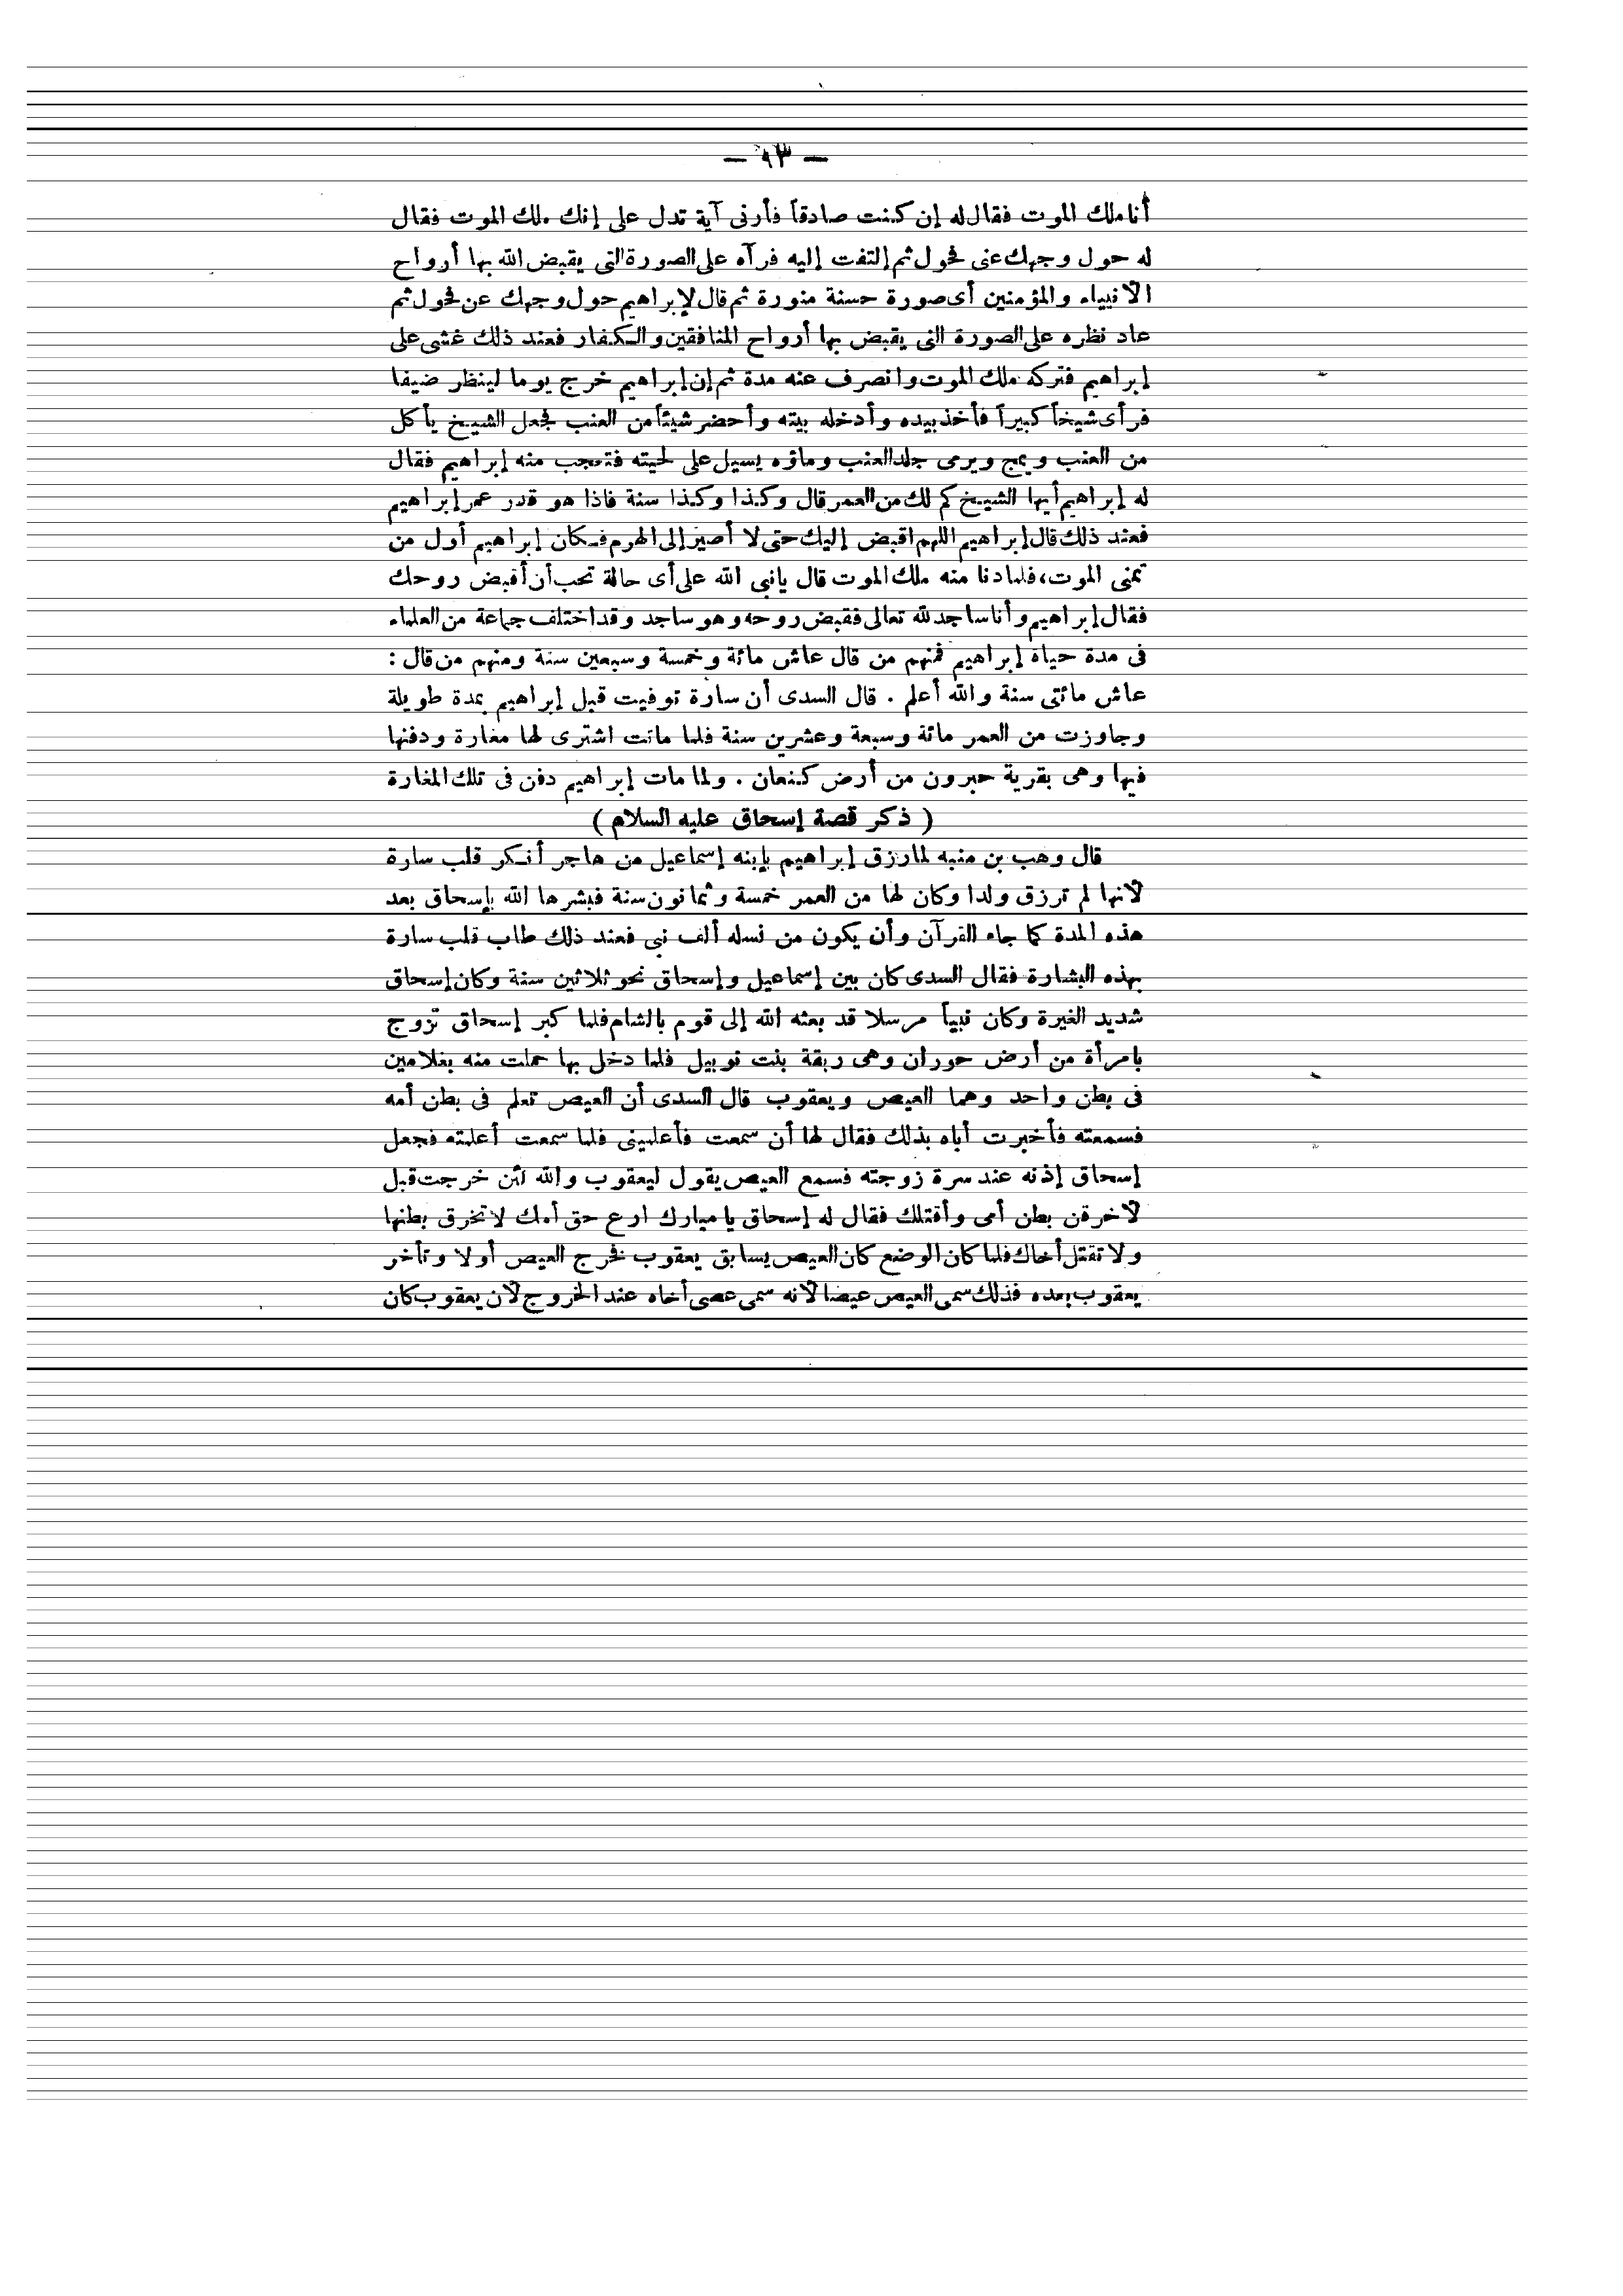 — ٩٣ —
أنا ملك الموت فقال له إن كنت صادقاً فأرنى آية تدل على إنك ملك الموت فقال
له حول وجهك عنى فحول ثم إلتفت إليه فرآه على الصورة التى يقبض الله بها أرواح
الانبياء والمؤمنين أى صورة حسنة منورة ثم قال لإبراهيم حول وجهك عن فحول ثم
عاد نظره على الصورة التى يقبض بها أرواح المنافقين والكفار فعند ذلك غشى على
إبراهيم فتركه ملك الموت وانصرف عنه مدة ثم إن إبراهيم خرج يوما لينظر ضيفا
فرأى شيخاً كبيراً فأخذ بيده وأدخله بيته وأحضر شيئاً من العنب فجعل الشيخ يأكل
من العنب ويمج ويرمى جلد العنب وماؤه يسيل على لحيته فتعجب منه إبراهيم فقال
له إبراهيم أيها الشيخ كم لك من العمر قال وكذا وكذا سنة فاذا هو قدر عمر إبراهيم
فعند ذلك قال إبراهيم اللهم اقبض إليك حتى لا أصير إلى الهرم فكان إبراهيم أول من
تمنى الموت، فلما دنا منه ملك الموت قال يانبى الله على أى حالة تحب أن أقبض روحك
فقال إبراهيم وأنا ساجد لله تعالى فقبض روحه وهو ساجد وقد اختلف جماعة من العلماء
فى مدة حياة إبراهيم فمنهم من قال عاش مائة وخمسة وسبعين سنة ومنهم من قال :
عاش مائتى سنة والله أعلم . قال السدى أن سارة توفيت قبل إبراهيم بمدة طويلة
وجاوزت من العمر مائة وسبعة وعشرين سنة فلما ماتت اشترى لها مغارة ودفنها
فيها وهى بقرية حبرون من أرض كنعان . ولما مات إبراهيم دفن فى تلك المغارة
( ذكر قصة إسحاق عليه السلام )
قال وهب بن منبه لما رزق إبراهيم بإبنه إسماعيل من هاجر أنكر قلب سارة
لانها لم ترزق ولدا وكان لها من العمر خمسة وثمانون سنة فبشرها الله بإسحاق بعد
هذه المدة كما جاء القرآن وأن يكون من نسله ألف نبى فعند ذلك طاب قلب سارة
بهذه البشارة فقال السدى كان بين إسماعيل وإسحاق نحو ثلاثين سنة وكان إسحاق
شديد الغيرة وكان نبياً مرسلا قد بعثه الله إلى قوم بالشام فلما كبر إسحاق تزوج
بامرأة من أرض حوران وهى ربقة بنت نوبيل فلما دخل بها حملت منه بغلامين
فى بطن واحد وهما العيص ويعقوب قال السدى أن العيص تعلم فى بطن أمه
فسمعته فأخبرت أباه بذلك فقال لها أن سمعت فأعلمينى فلما سمعت أعلمته فجعل
إسحاق إذنه عند سرة زوجته فسمع العيص يقول ليعقوب والله لئن خرجت قبل
لاخرقن بطن أمى وأقتلك فقال له إسحاق يا مبارك ارع حق أمك لا تخرق بطنها
ولا تقتل أخاك فلما كان الوضع كان العيص يسابق يعقوب فخرج العيص أولا وتأخر
يعقوب بعده فذلك سمى العيص عيضا لانه سمى عصى أخاه عند الخروج لان يعقوب كان